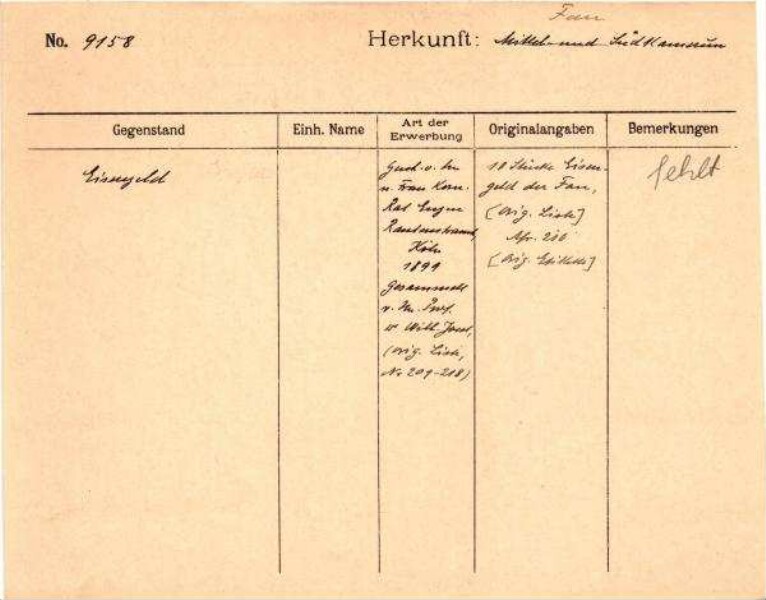 Fan
No. 9158 Herkunft: Mittel- und Süd Kamerun
Gegenstand Einh. Name Art der Erwerbung Originalangaben Bemerkungen
Eisengeld
Gesch. v. Hn
u. Frau Kom.
Rat Eugen
Rautenstrauch,
Köln
1899
Gesammelt
v. Hn. Prof.
Wilh. Joest,
(orig. Liste,
No 209-218)
10 Stücke Eisen-
geld der Fan,
[Orig. Liste]
Afr. 210
[Orig. Etikette]
fehlt